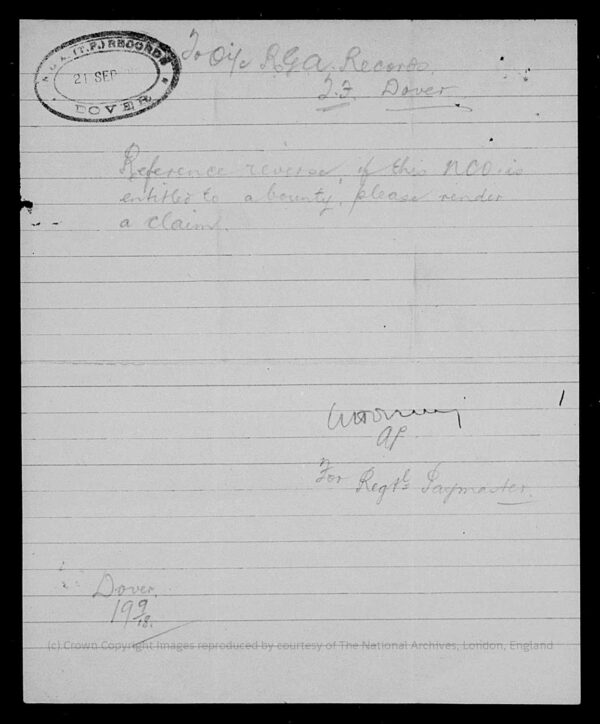 R.G.A. (T.F.) RECORDS
21 SEP
DOVER
To O i/c R.G.A. Records.
T.F. Dover.
Reference reverse, if this NCO. is
entitled to a bounty, please render
a claim.
AP
For Regtl Paymaster.
Dover.
19 9/18.
(c) Crown Copyright Images reproduced by courtesy of The National Archives, London, England